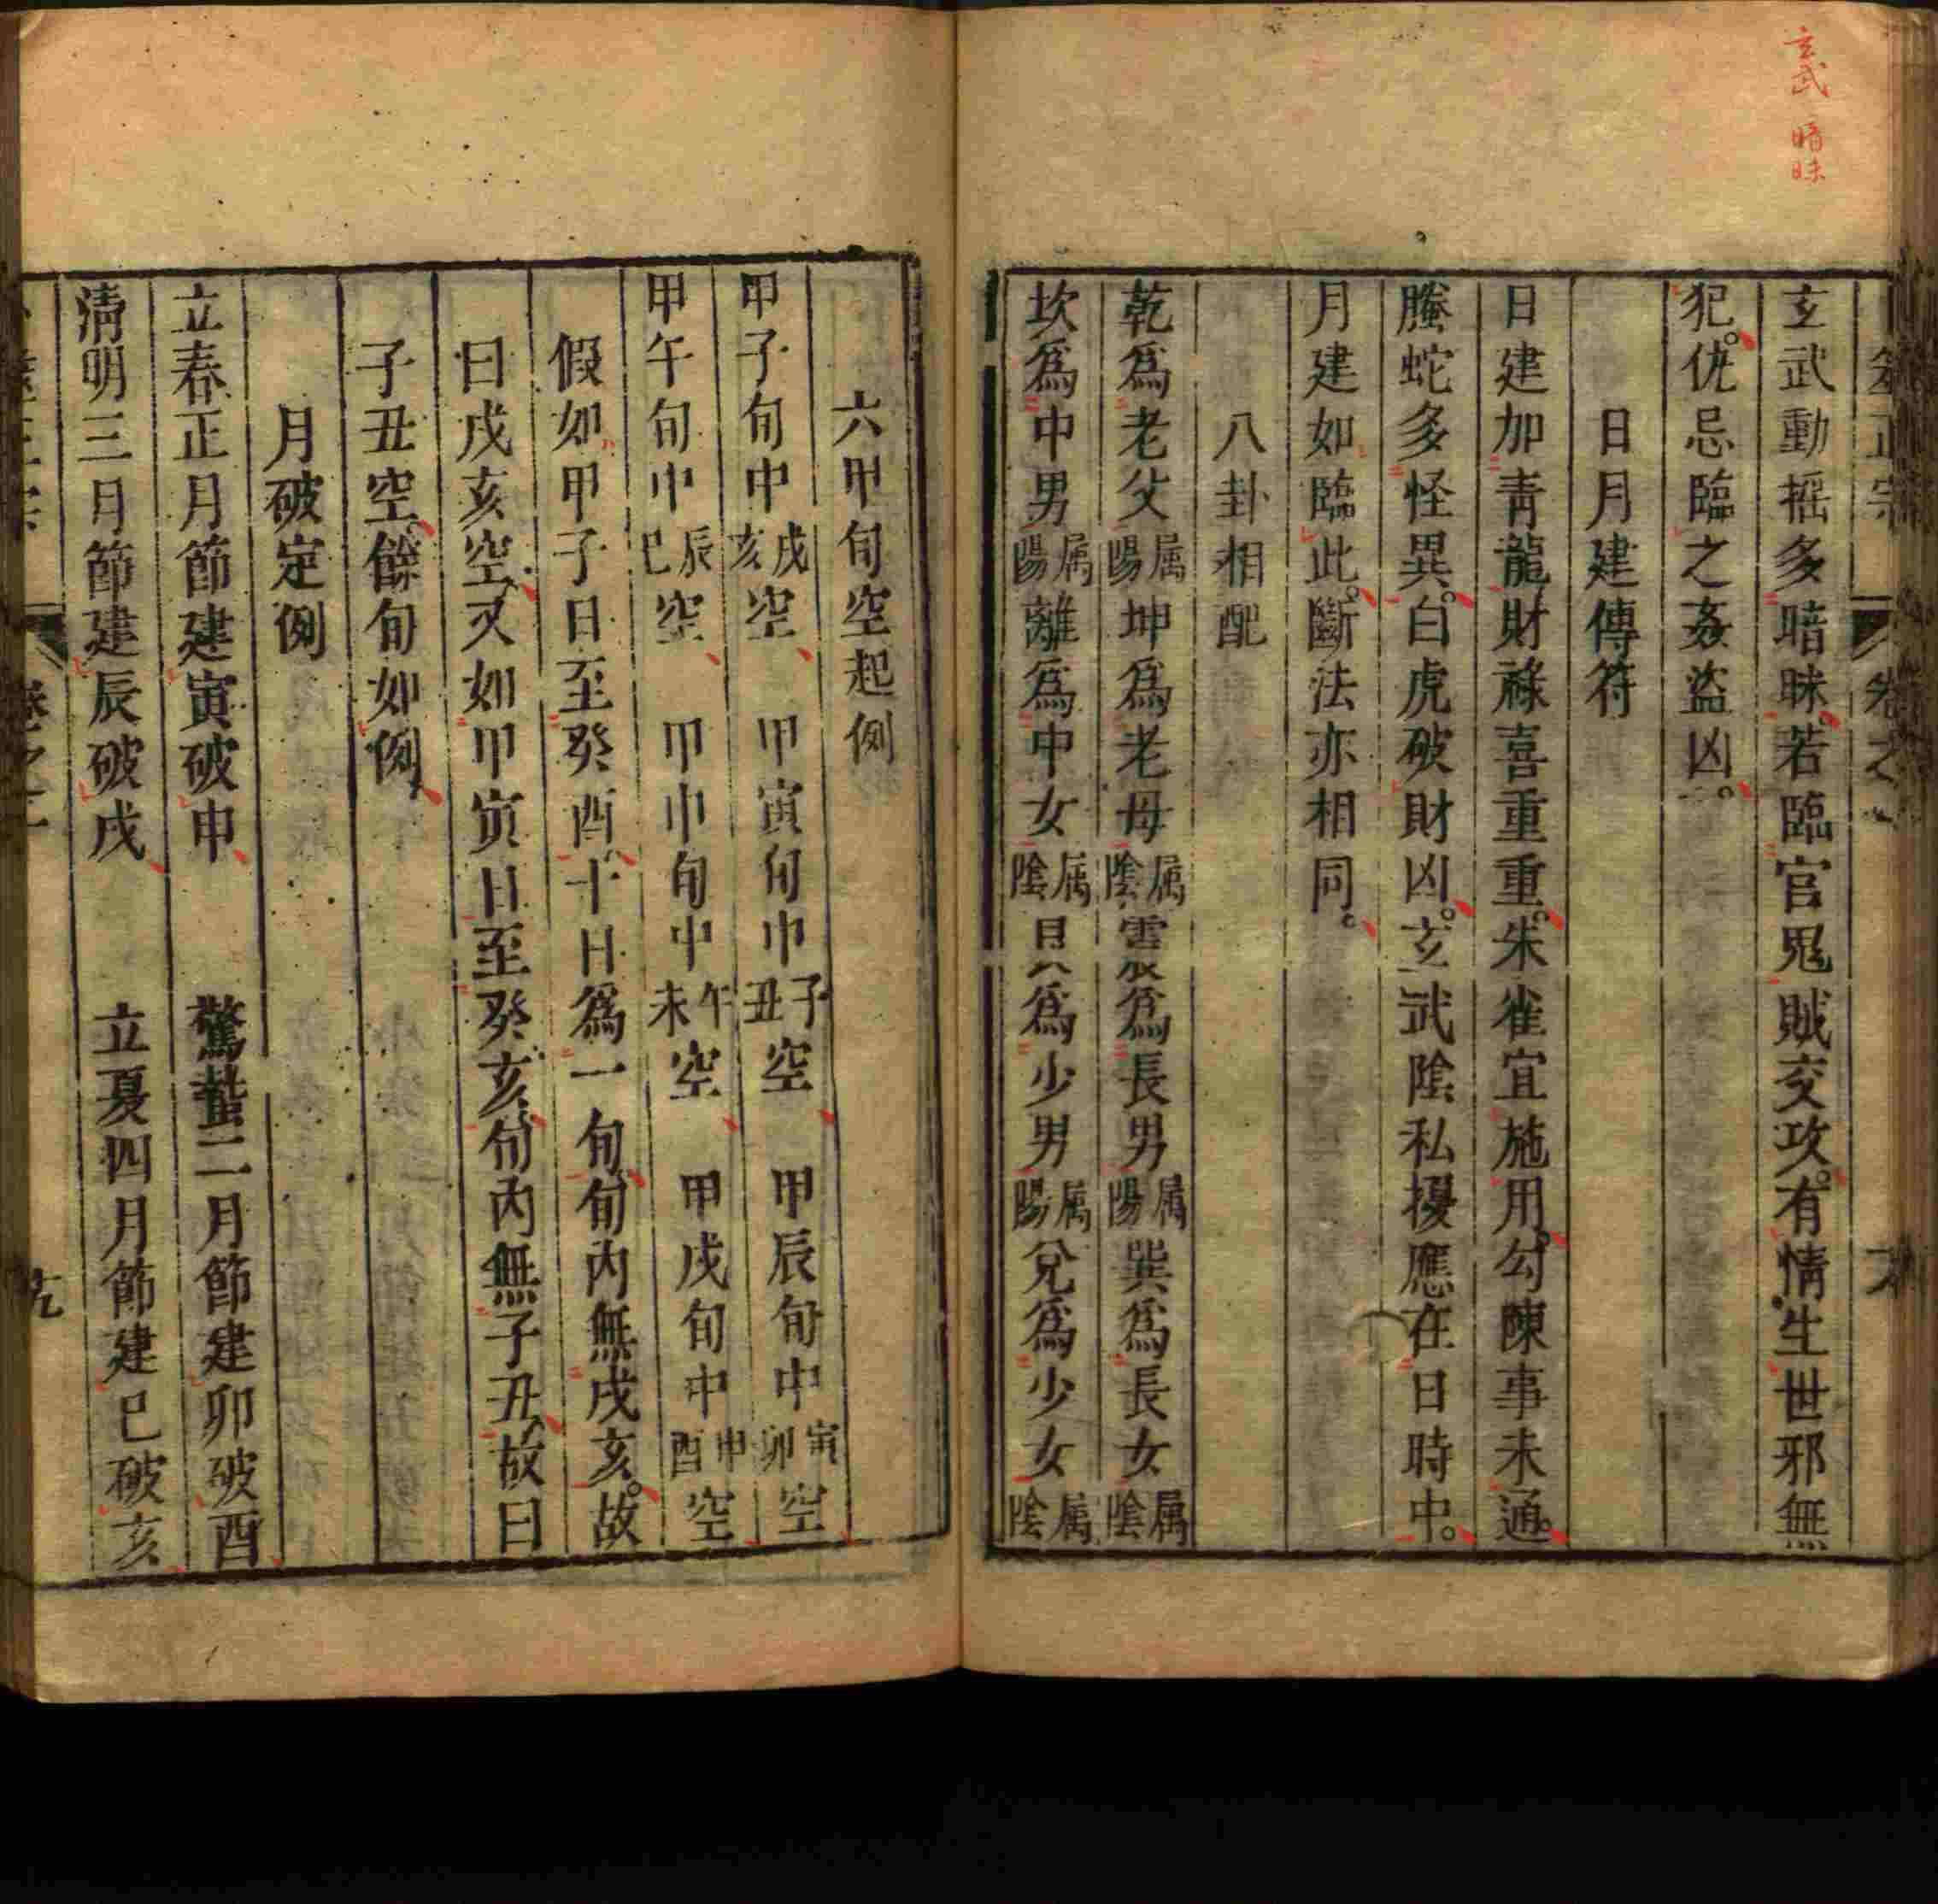 玄武 暗昧
玄武動摇多暗昧。若臨官鬼賊交攻。有情生世邪無
犯。仇忌臨之姦盜凶。
日月建傳符
日建加青龍財祿喜重重。朱雀宜施用。勾陳事未通。
螣蛇多怪異。白虎破財凶。玄武陰私擾應在日時中。
月建如臨此。斷法亦相同。
八卦相配
乾爲老父属陽坤爲老母属陰震爲長男属陽巽爲長女属陰
坎爲中男属陽離爲中女属陰艮爲少男属陽兌爲少女属陰
六甲旬空起例
甲子旬中戌亥空 甲寅旬中子丑空 甲辰旬中寅卯空
甲午旬中辰巳空 甲申旬中午未空 甲戌旬中申酉空
假如甲子日至癸酉。十日爲一旬、旬內無戌亥。故
曰戌亥空、又如甲寅日至癸亥、旬內無子丑、故曰
子丑空。餘旬如例、
月破定例
立春正月節建寅破申 驚蟄二月節建卯破酉
清明三月節建辰破戌 立夏四月節建巳破亥